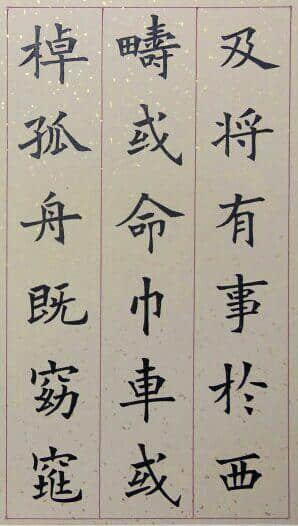 及将有事於西
疇或命巾車或
棹孤舟既窈窕